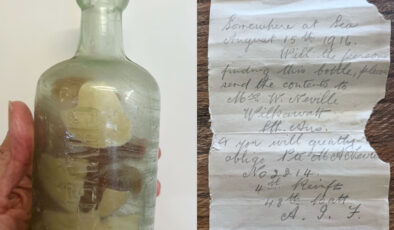 Somewhere at Sea
August 15th 1916.
Will a person
finding this bottle, please
send the contents to
Mrs W. Neville
Wilkawatt
Sth Aus.
& you will greatly
oblige
No 2814.
4th Reinft
48th Batt
A. I. F.